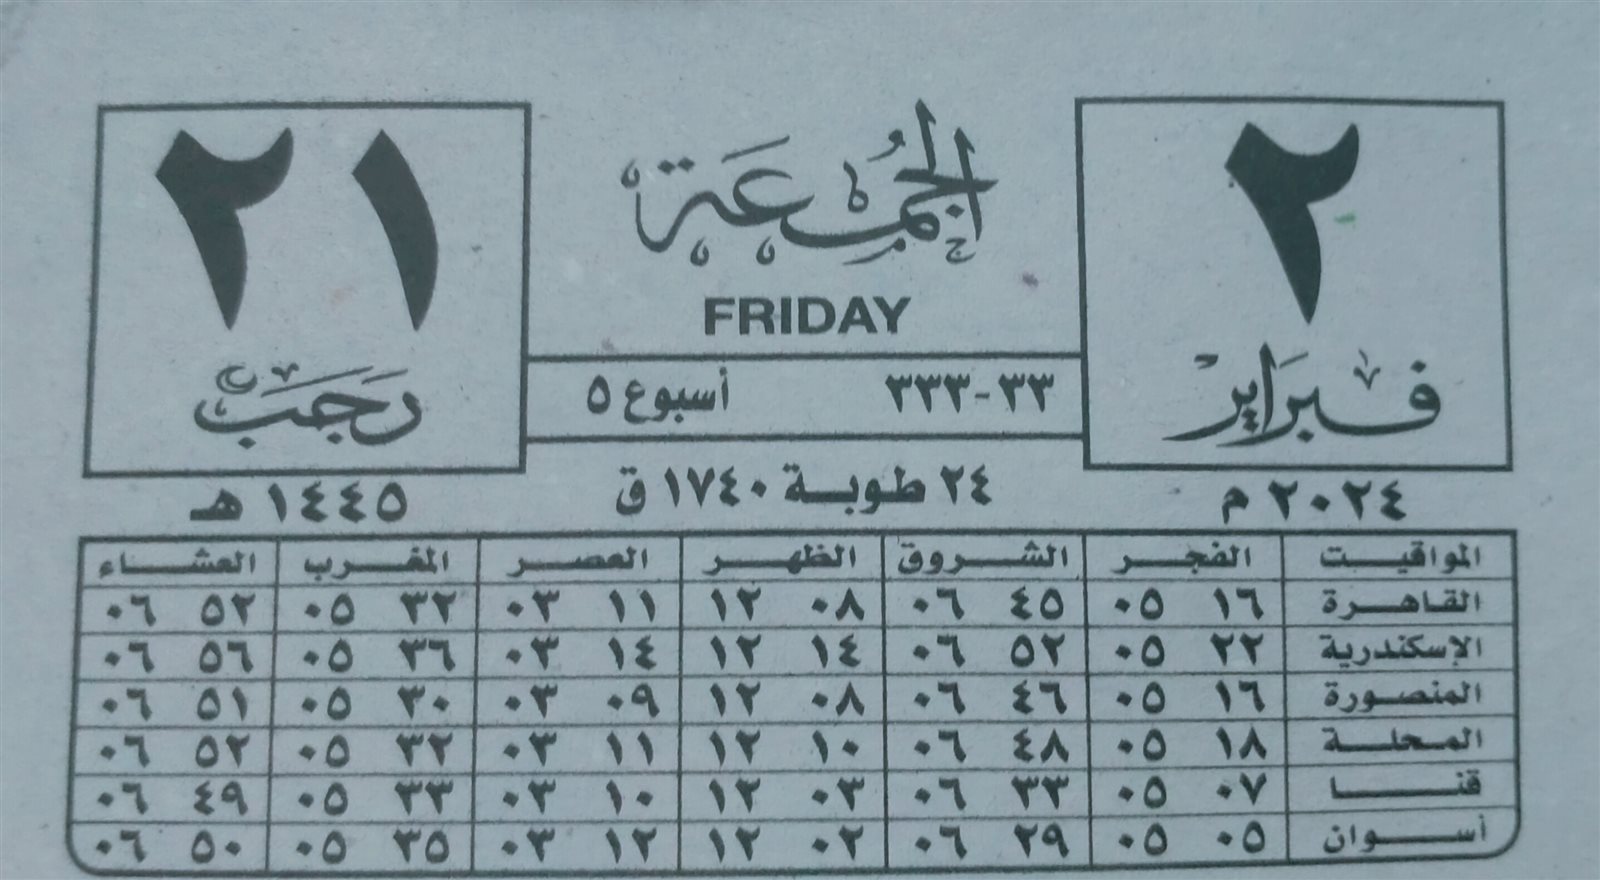 ٢
فبراير
٢٠٢٤ م
الجمعة
FRIDAY
٣٣-٣٣٣ أسبوع ٥
٢٤ طوبة ١٧٤٠ ق
٢١
رجب
١٤٤٥ هـ
المواقيت الفجر الشروق الظهر العصر المغرب العشاء
القاهرة ١٦ ٠٥ ٤٥ ٠٦ ٠٨ ١٢ ١١ ٠٣ ٣٢ ٠٥ ٥٢ ٠٦
الإسكندرية ٢٢ ٠٥ ٥٢ ٠٦ ١٤ ١٢ ١٤ ٠٣ ٣٦ ٠٥ ٥٦ ٠٦
المنصورة ١٦ ٠٥ ٤٦ ٠٦ ٠٨ ١٢ ٠٩ ٠٣ ٣٠ ٠٥ ٥١ ٠٦
المحلة ١٨ ٠٥ ٤٨ ٠٦ ١٠ ١٢ ١١ ٠٣ ٣٢ ٠٥ ٥٢ ٠٦
قنا ٠٧ ٠٥ ٣٣ ٠٦ ٠٣ ١٢ ١٠ ٠٣ ٣٣ ٠٥ ٤٩ ٠٦
أسوان ٠٥ ٠٥ ٢٩ ٠٦ ٠٢ ١٢ ١٢ ٠٣ ٣٥ ٠٥ ٥٠ ٠٦